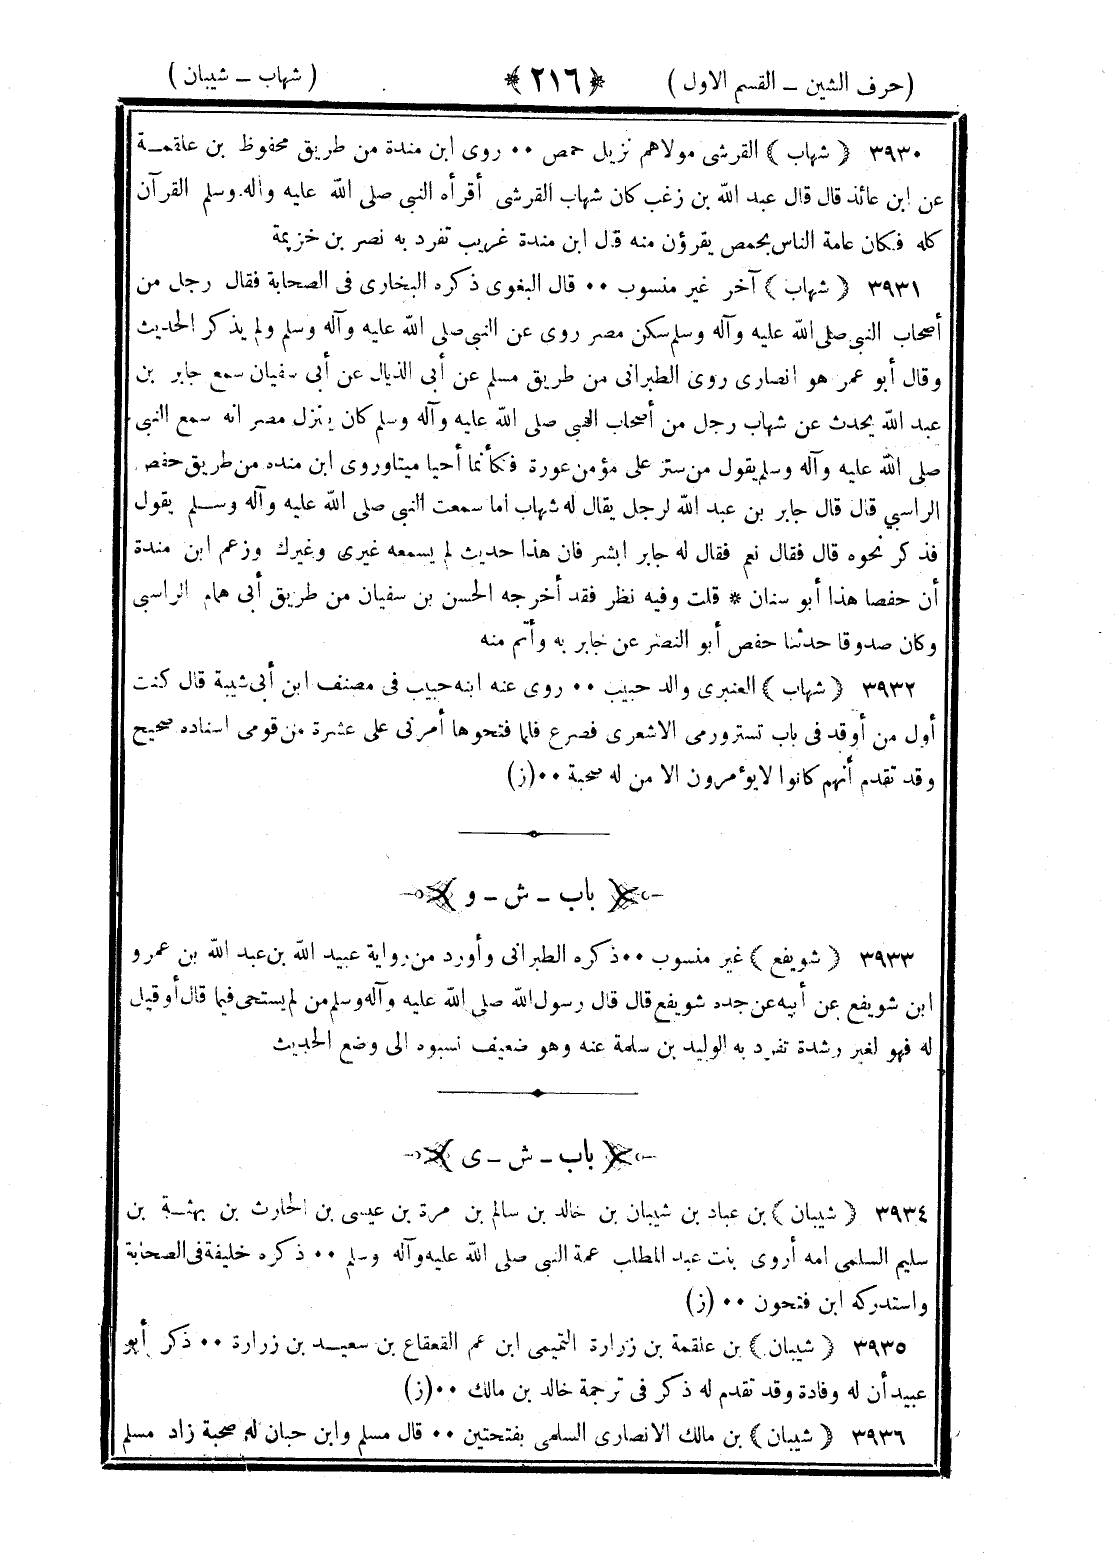 (حرف الشين ــ القسم الاول) ﴿٢١٦﴾ (شهاب ــ شيبان)
٣٩٣٠ ﴿شهاب﴾ القرشى مولاهم نزيل حمص ٠٠ روى ابن مندة من طريق محفوظ بن علقمــة
عن ابن عائذ قال قال عبد الله بن زغب كان شهاب القرشى أقرأه النبي صلى الله عليه وآله وسلم القرآن
كله فكان عامة الناس بحمص يقرؤن منه قال ابن مندة غريب تفرد به نصر بن خزيمة
٣٩٣١ ﴿شهاب﴾ آخر غير منسوب ٠٠ قال البغوى ذكره البخارى فى الصحابة فقال رجل من
أصحاب النبي صلى الله عليه وآله وسلم سكن مصر روى عن النبي صلى الله عليه وآله وسلم ولم يذكر الحديث
وقال أبو عمر هو انصارى روى الطبرانى من طريق مسلم عن أبى الذيال عن أبى سفيان سمع جابر بن
عبد الله يحدث عن شهاب رجل من أصحاب النبى صلى الله عليه وآله وسلم كان ينزل مصر انه سمع النبى
صلى الله عليه وآله وسلم يقول من ستر على مؤمن عورة فكأنما أحيا ميتا وروى ابن منده من طريق حفص
الراسبي قال قال جابر بن عبد الله لرجل يقال له شهاب أما سمعت النبى صلى الله عليه وآله وســلم يقول
فذكر نحوه قال فقال نعم فقال له جابر ابشر فان هذا حديث لم يسمعه غيرى وغيرك وزعم ابن مندة
أن حفصا هذا أبو سنان * قلت وفيه نظر فقد أخرجه الحسن بن سفيان من طريق أبى همام الراسبى
وكان صدوقا حدثنا حفص أبو النصر عن جابر به وأتم منه
٣٩٣٢ ﴿شهاب﴾ العنبرى والد حبيب ٠٠ روى عنه ابنه حبيب فى مصنف ابن أبى شيبة قال كنت
أول من أوقد فى باب تستر ورمى الاشعرى فصرع فلما فتحوها أمرنى على عشرة من قومى اسناده صحيح
وقد تقدم أنهم كانوا لا يؤمرون الا من له صحبة ٠٠ (ز)
باب ــ ش ــ و
٣٩٣٣ ﴿شويفع﴾ غير منسوب ٠٠ ذكره الطبرانى وأورد من رواية عبيد الله بن عبد الله بن عمرو
ابن شويفع عن أبيه عن جده شويفع قال قال رسول الله صلى الله عليه وآله وسلم من لم يستحى فيما قال أو قيل
له فهو لغير رشدة تفرد به الوليد بن سلمة عنه وهو ضعيف نسبوه الى وضع الحديث
باب ــ ش ــ ى
٣٩٣٤ ﴿شيبان﴾ بن عباد بن شيبان بن خالد بن سالم بن مرة بن عيسى بن الحارث بن بهثــة بن
سليم السلمى امه أروى بنت عبد المطلب عمة النبى صلى الله عليه وآله وسلم ٠٠ ذكره خليفة فى الصحابة
واستدركه ابن فتحون ٠٠ (ز)
٣٩٣٥ ﴿شيبان﴾ بن علقمة بن زرارة التميمى ابن عم القعقاع بن سعيــد بن زرارة ٠٠ ذكر أبو
عبيد أن له وفادة وقد تقدم له ذكر فى ترجمة خالد بن مالك ٠٠ (ز)
٣٩٣٦ ﴿شيبان﴾ بن مالك الانصارى السلمى بفتحتين ٠٠ قال مسلم وابن حبان له صحبة زاد مسلم